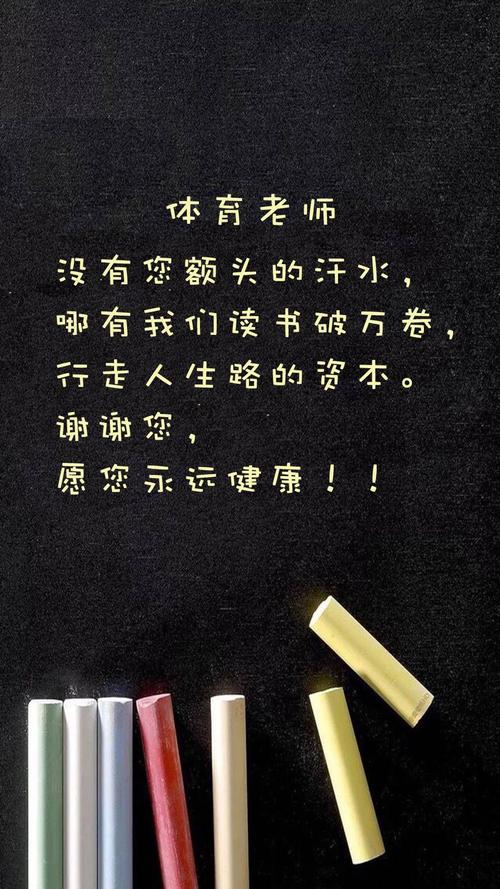 体育老师
没有您额头的汗水，
哪有我们读书破万卷，
行走人生路的资本。
谢谢您，
愿您永远健康！！